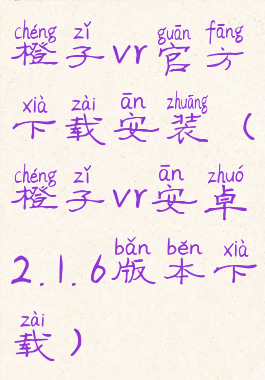 chéng zǐ guān fāng
橙子vr官方
xià zài ān zhuāng
下载安装（
chéng zǐ ān zhuó
橙子vr安卓
bǎn běn xià
2.1.6版本下
zài
载）